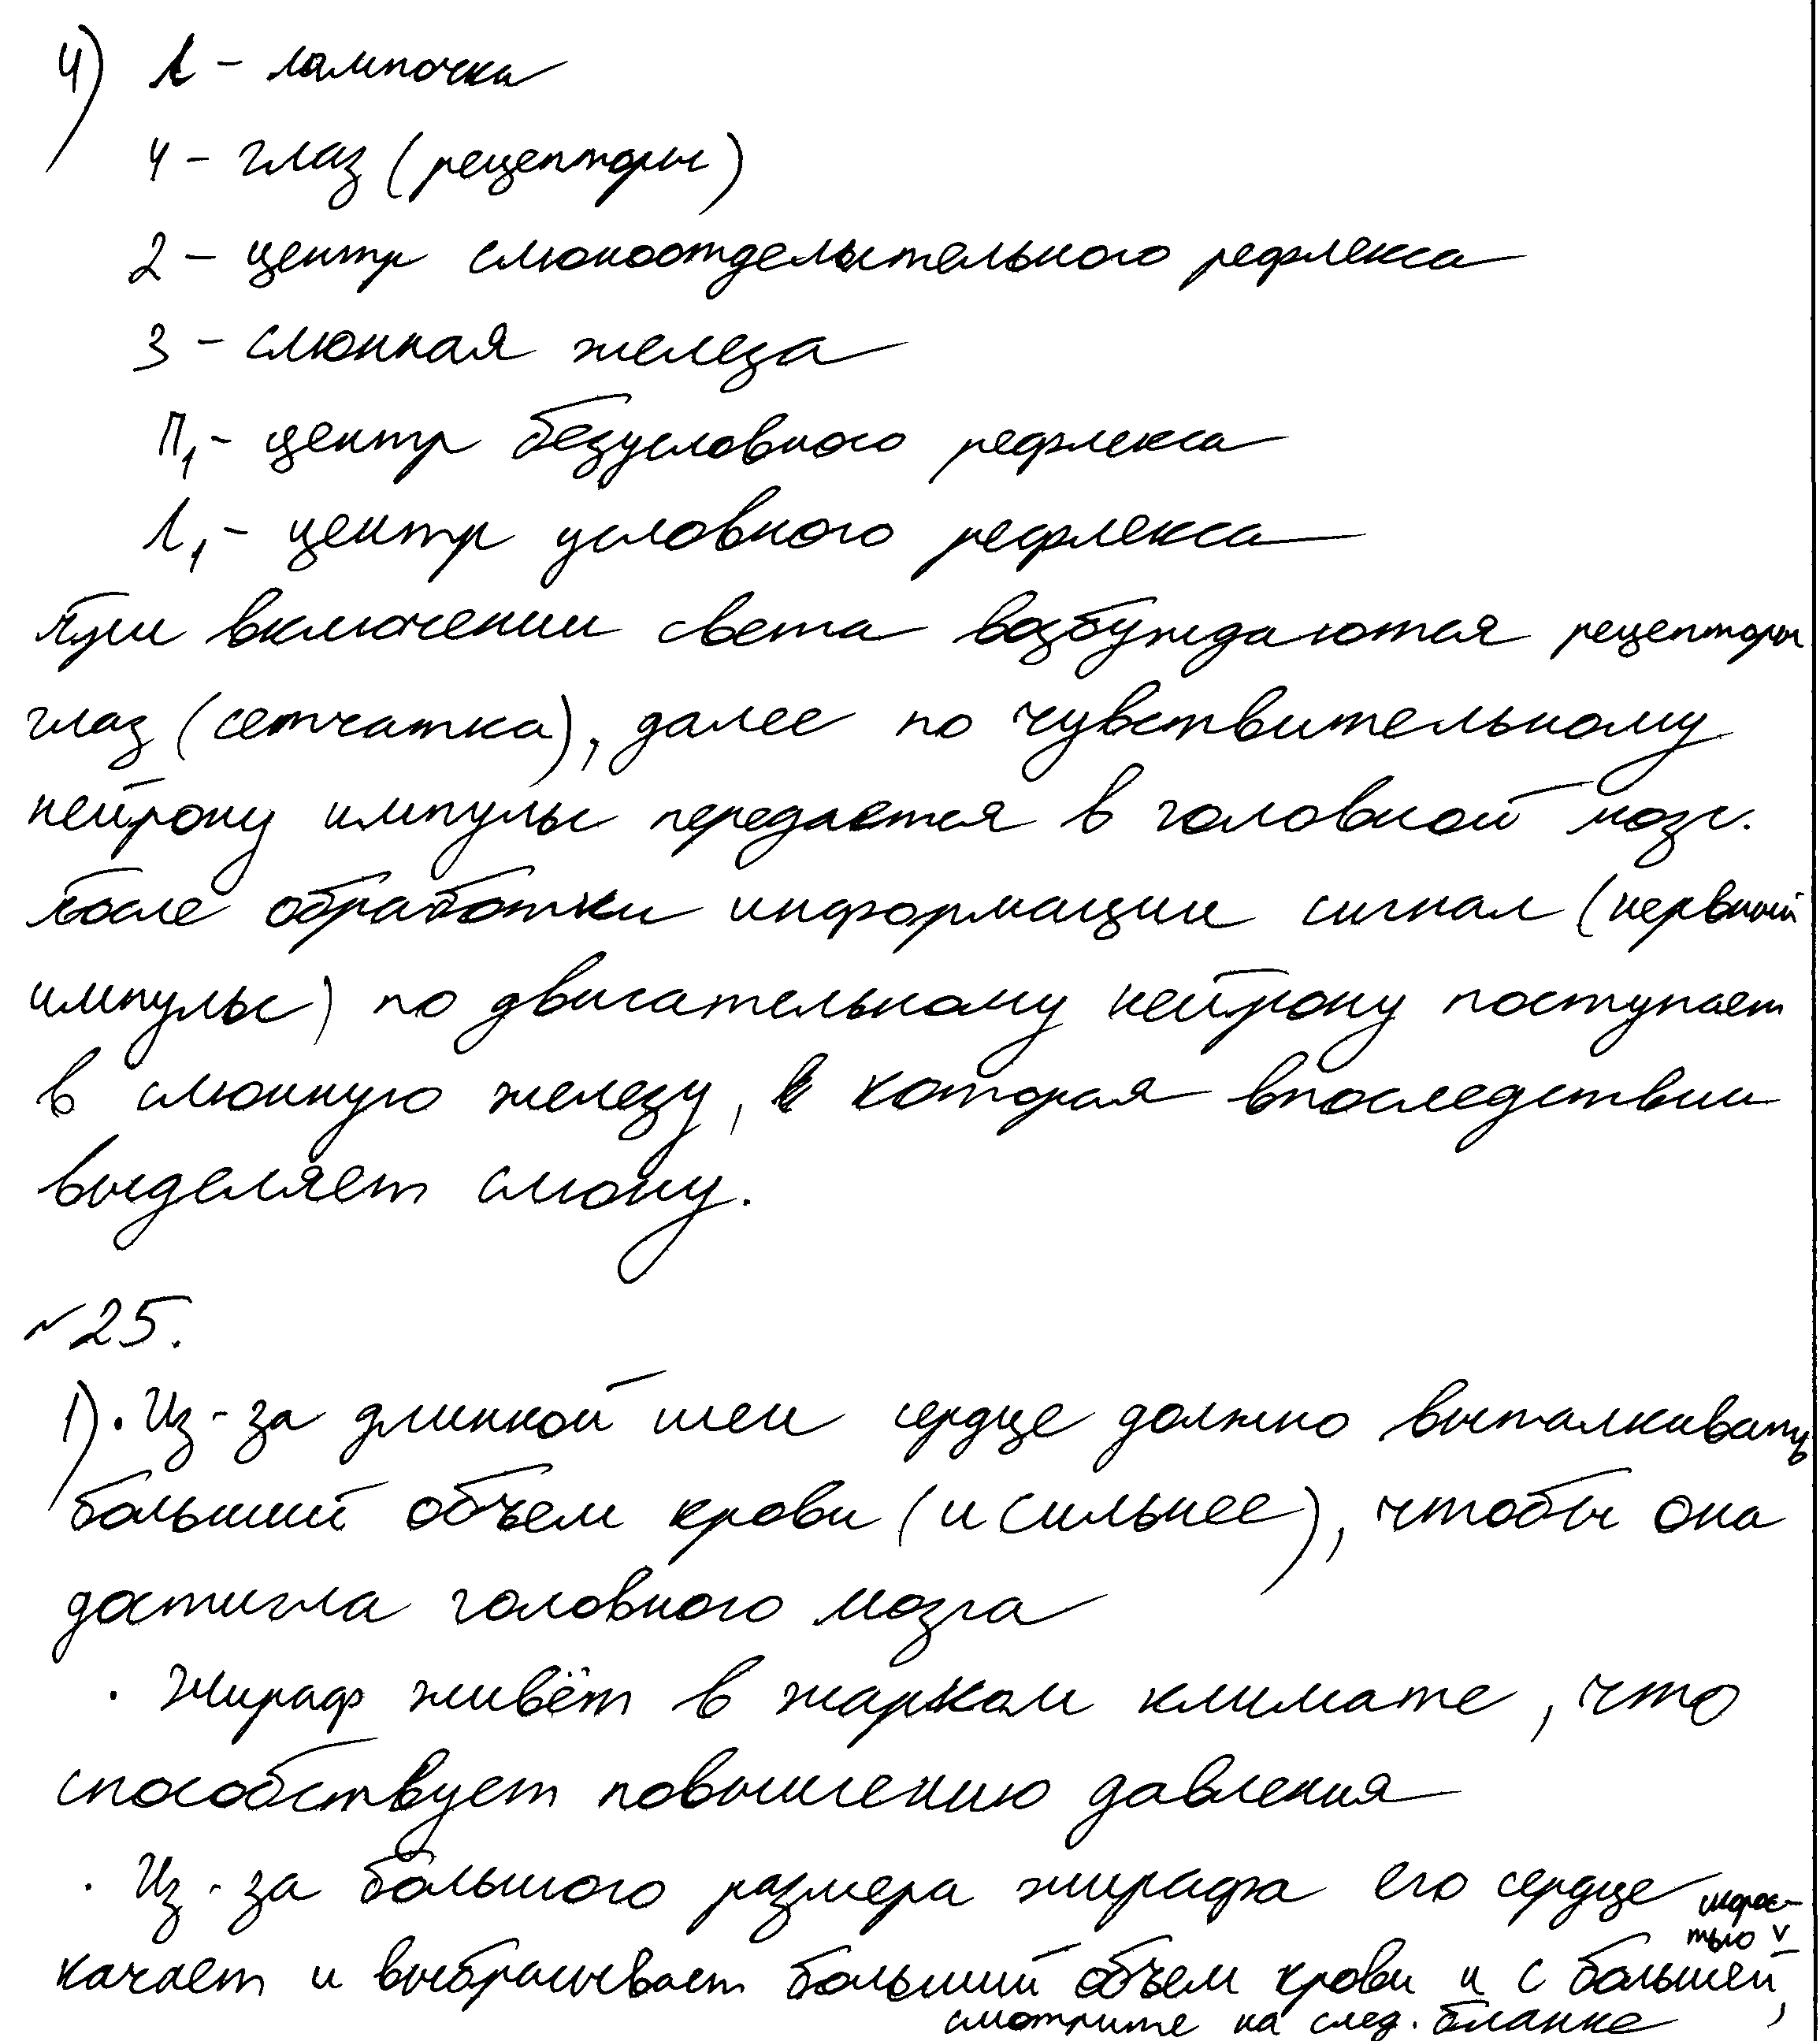 4) Л - лампочка
4 - глаз (рецепторы)
2 - центр слюноотделительного рефлекса
3 - слюнная железа
П1 - центр безусловного рефлекса
Л1 - центр условного рефлекса
При включении света возбуждаются рецепторы
глаз (сетчатка), далее по чувствительному
нейрону импульс передается в головной мозг.
После обработки информации сигнал (нервный
импульс) по двигательному нейрону поступает
в слюнную железу, которая впоследствии
выделяет слюну.
№25.
1) · Из-за длинной шеи сердце должно выталкивать
больший объем крови (и сильнее), чтобы она
достигла головного мозга
· Жираф живёт в жарком климате, что
способствует повышению давления
· Из-за большого размера жирафа его сердце
качает и выбрасывает больший объем крови и с большей скорос-
тью,
смотрите на след. бланке